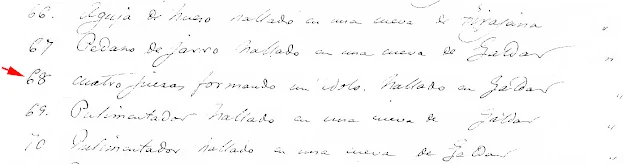 66. Aguja de hueso hallado en una cueva de Tirajana "
67 Pedazo de jarro hallado en una cueva de Galdar "
68 cuatro piezas formando un idolo. hallado en Gáldar "
69. Pulimentador hallado en una cueva de Galdar "
70 Pulimentador hallado en una cueva de Galdar "